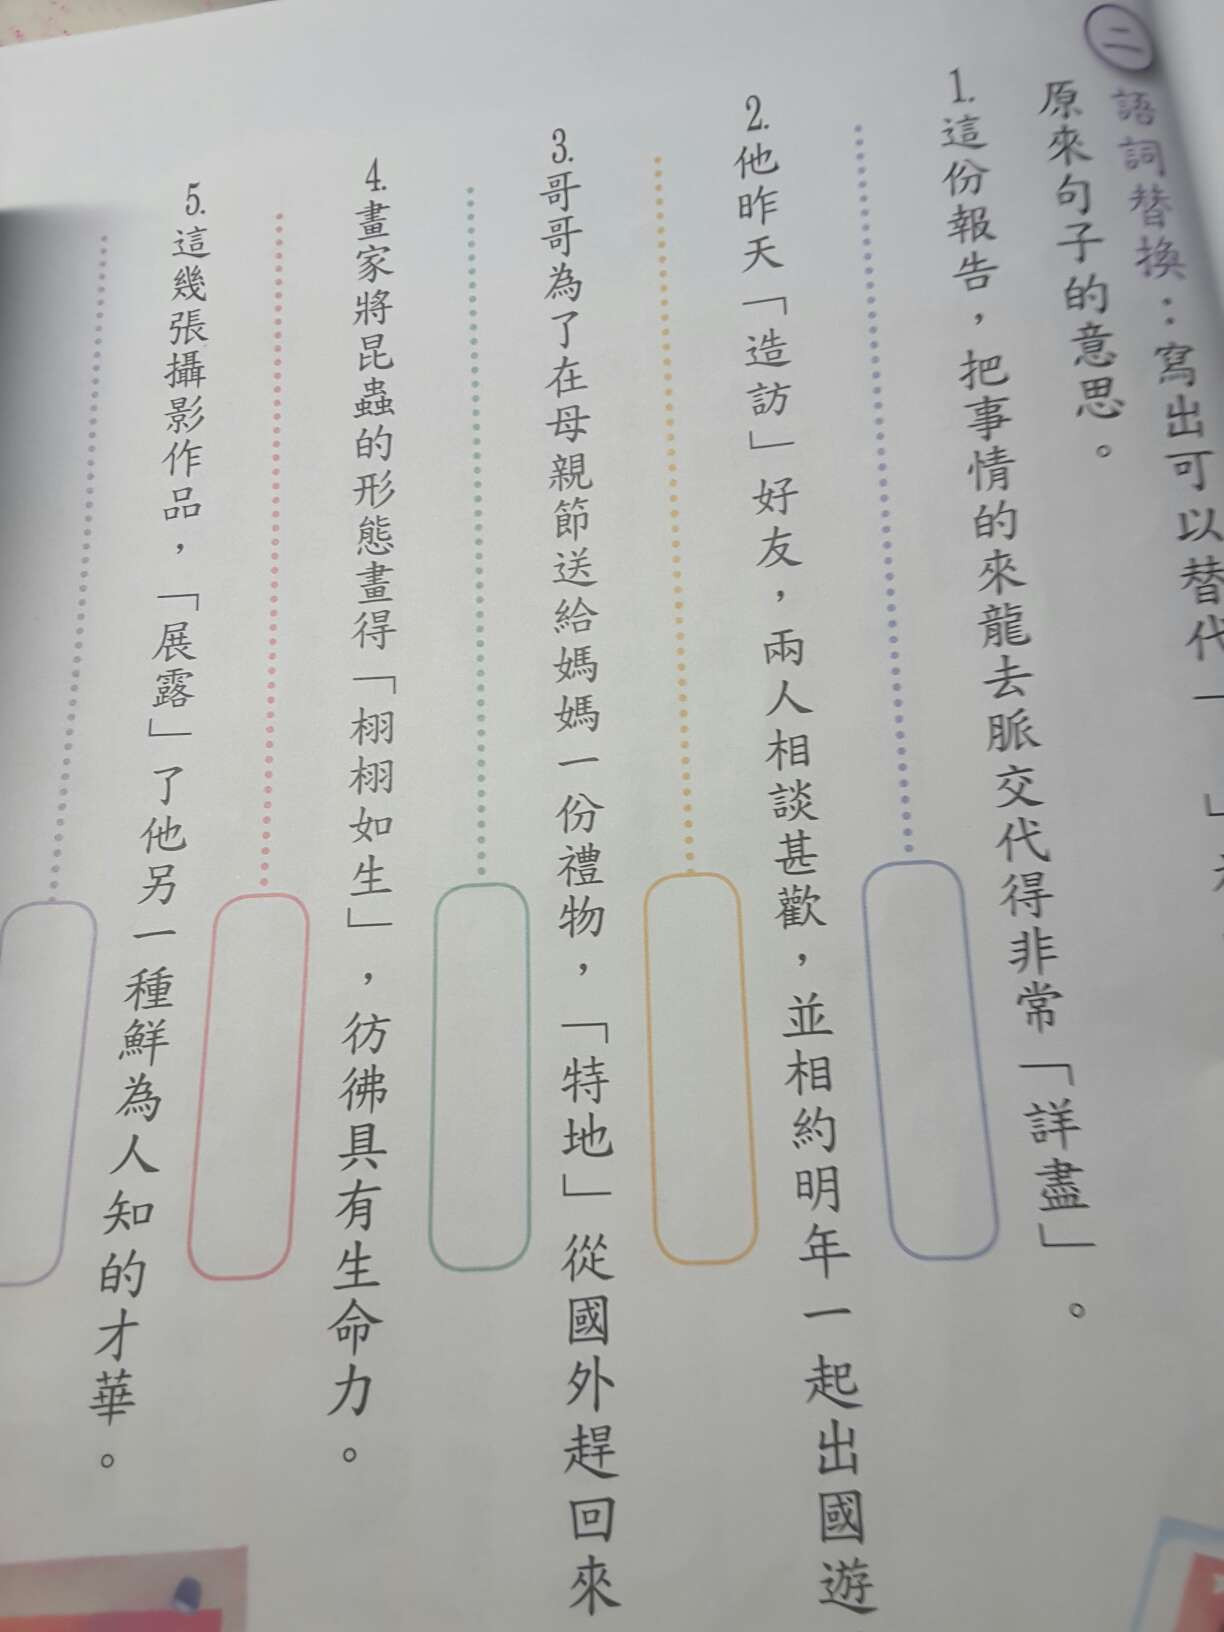 二 語詞替換：寫出可以替代「
原來句子的意思。
1.這份報告，把事情的來龍去脈交代得非常「詳盡」。
2.他昨天「造訪」好友，兩人相談甚歡，並相約明年一起出國遊
3.哥哥為了在母親節送給媽媽一份禮物，「特地」從國外趕回來
4.畫家將昆蟲的形態畫得「栩栩如生」，彷彿具有生命力。
5.這幾張攝影作品，「展露」了他另一種鮮為人知的才華。